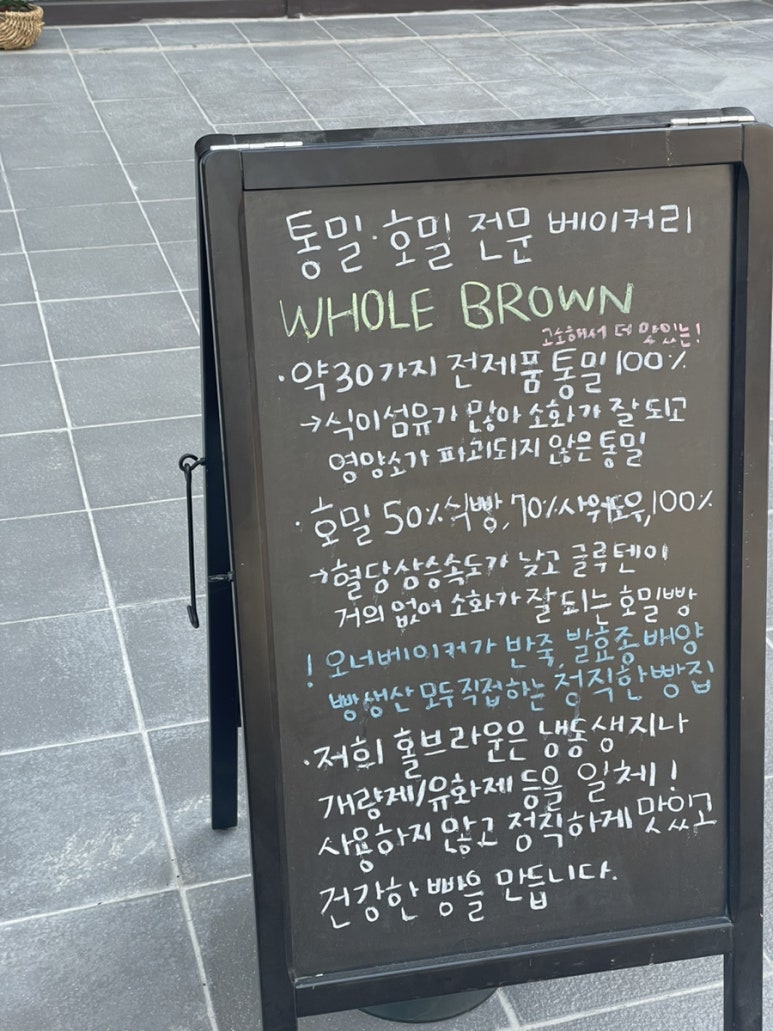 통밀·호밀 전문 베이커리
WHOLE BROWN
고소해서 더 맛있는!
·약30가지 전제품 통밀100%
→식이섬유가 많아 소화가 잘 되고
영양소가 파괴되지 않은 통밀
·호밀 50%식빵, 70%사워도우, 100%
→혈당상승속도가 낮고 글루텐이
거의 없어 소화가 잘 되는 호밀빵
! 오너베이커가 반죽, 발효종 배양
빵생산 모두 직접하는 정직한 빵집
·저희 홀브라운은 냉동생지나
개량제/유화제 등을 일체!
사용하지 않고 정직하게 맛있고
건강한 빵을 만듭니다.